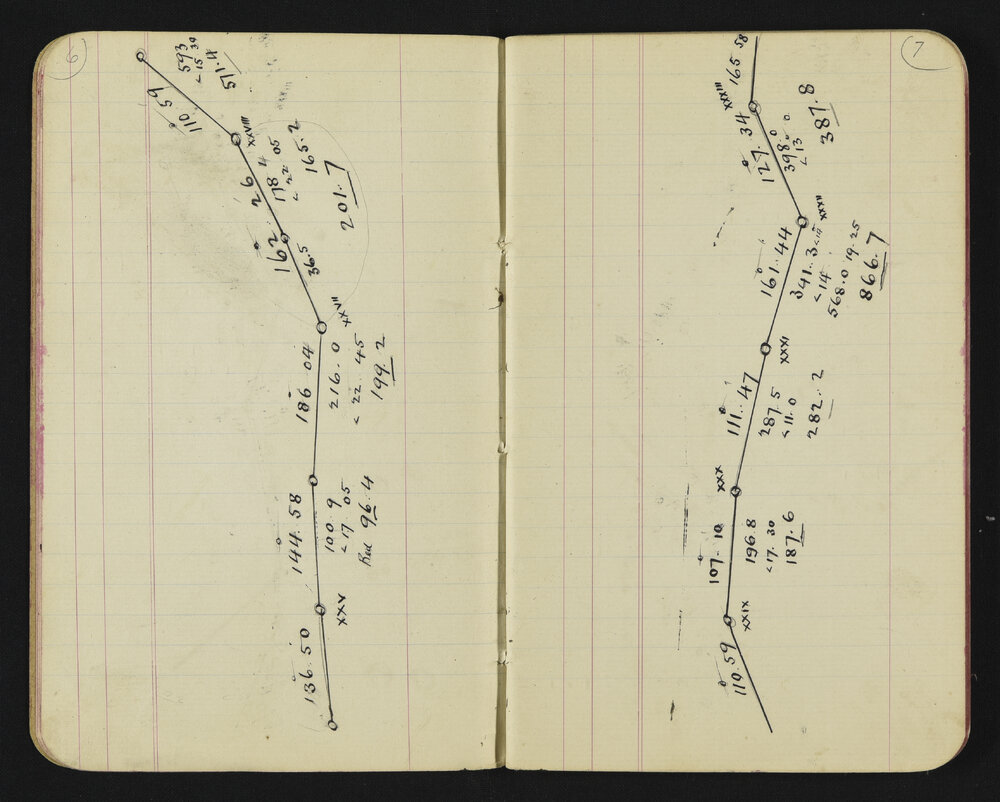 6
136°.50
XXV
144°.58
100.9
< 17.05
Red 96.4
186°04
216.0
< 22.45
199.2
XXVII
162°26
36.5
178.4
< 22.05
165.2
201.7
XXVIII
110°59
593
< 15 30
571.4
7
110°.59
XXIX
107°.10
196.8
< 17.30
187.6
XXX
111°.47
287.5
< 11.0
282.2
XXXI
161°.44
341.3
< 14
568.0 19.25
866.7
XXXII
127°.34
398.0
< 13
387.8
XXXIII
165 58